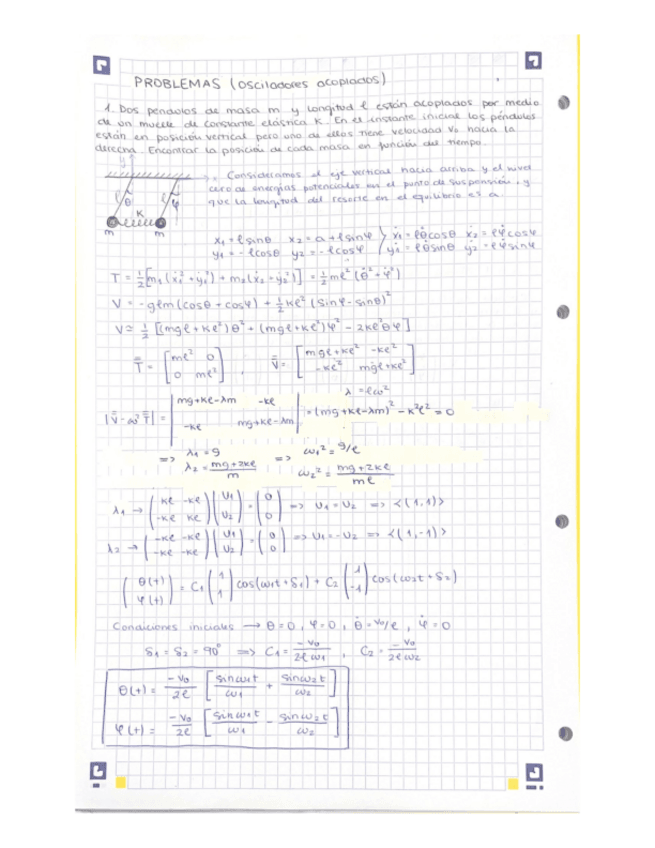 PROBLEMAS (osciladores acoplados)
1. Dos péndulos de masa m y longitud ℓ están acoplados por medio
de un muelle de constante elástica K. En el instante inicial los péndulos
están en posición vertical pero uno de ellos tiene velocidad v₀ hacia la
derecha. Encontrar la posición de cada masa en función del tiempo.
y
Consideramos el eje vertical hacia arriba y el nivel
cero de energías potenciales en el punto de suspensión, y
que la longitud del resorte en el equilibrio es a.
ℓ θ ℓ φ
K
m m
x₁ = ℓ sinθ x₂ = a + ℓ sinφ } ẋ₁ = ℓθ̇ cosθ ẋ₂ = ℓφ̇ cosφ
y₁ = -ℓcosθ y₂ = -ℓcosφ ẏ₁ = ℓθ̇ sinθ ẏ₂ = ℓφ̇ sinφ
T = 1/2 [m₁(ẋ₁² + ẏ₁²) + m₂(ẋ₂ + ẏ₂²)] = 1/2 mℓ² (θ̇² + φ̇²)
V = -gℓm (cosθ + cosφ) + 1/2 Kℓ² (sinφ - sinθ)²
V ≃ 1/2 [(mgℓ + Kℓ²)θ² + (mgℓ + Kℓ²)φ² - 2Kℓ²θφ]
T = [mℓ² 0 ; 0 mℓ²] , V = [mgℓ+Kℓ² -Kℓ² ; -Kℓ² mgℓ+Kℓ²]
λ = ℓω²
|V - ω²T| = |mg+Kℓ-λm -Kℓ ; -Kℓ mg+Kℓ-λm| = (mg+Kℓ-λm)² - K²ℓ² = 0
=> λ₁ = g => ω₁² = g/ℓ
λ₂ = (mg+2Kℓ)/m ω₂² = (mg+2Kℓ)/mℓ
λ₁ → (Kℓ -Kℓ ; -Kℓ Kℓ)(U₁ ; U₂) = (0 ; 0) => U₁ = U₂ => <(1,1)>
λ₂ → (-Kℓ -Kℓ ; -Kℓ -Kℓ)(U₁ ; U₂) = (0 ; 0) => U₁ = -U₂ => <(1,-1)>
(θ(t) ; φ(t)) = C₁ (1 ; 1) cos(ω₁t + δ₁) + C₂ (1 ; -1) cos(ω₂t + δ₂)
Condiciones iniciales → θ=0, φ=0, θ̇ = v₀/ℓ, φ̇ = 0
δ₁ = δ₂ = 90° => C₁ = -v₀/2ℓω₁ , C₂ = -v₀/2ℓω₂
θ(t) = -v₀/2ℓ [sinω₁t/ω₁ + sinω₂t/ω₂]
φ(t) = -v₀/2ℓ [sinω₁t/ω₁ - sinω₂t/ω₂]